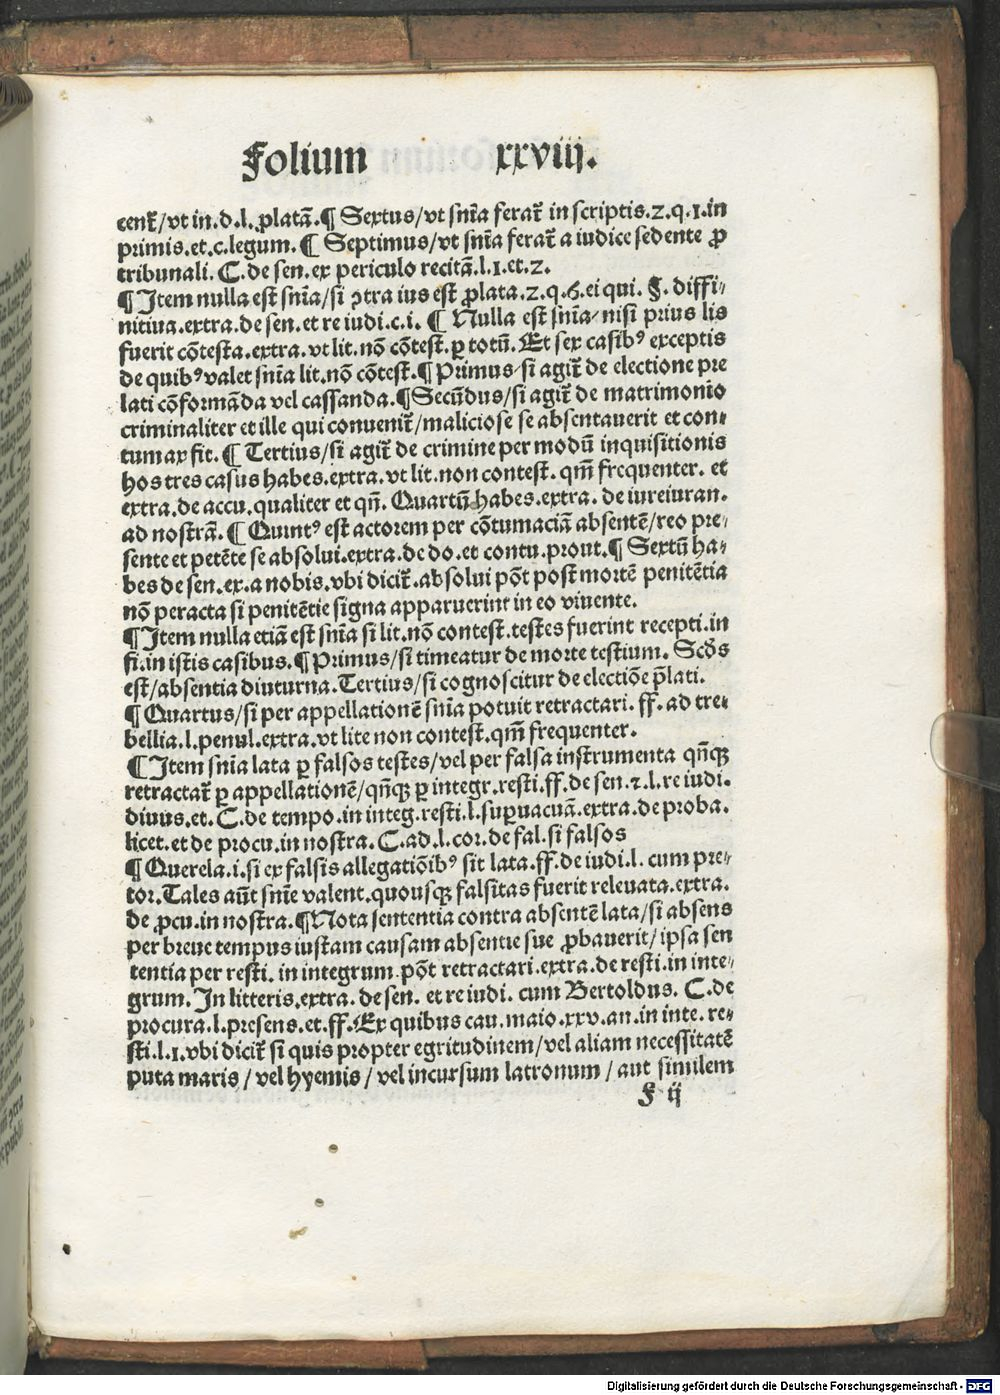 Folium xxviij.
cenť/vt in.d.l.ꝓlatā.¶ Sextus/vt sn̄ia ferať in scriptis.2.q.1.in
primis.et.c.legum.¶ Septimus/vt sn̄ia ferať a iudice sedente ꝓ
tribunali. C.de sen.ex periculo recitā.l.1.et.2.
¶ Item nulla est sn̄ia/si ꝯtra ius est ꝓlata.2.q.6.ei qui. §. diffi⸗
nitiua.extra.de sen.et re iudi.c.i. ¶ Nulla est sn̄ia/nisi prius lis
fuerit cōtesta.extra.vt lit.nō cōtest.ꝑ totū. Et sex casibꝰ exceptis
de quibꝰ valet sn̄ia lit.nō cōtest.¶ Primus/si agiť de electione pre
lati cōformāda vel cassanda.¶ Secūdus/si agiť de matrimonio
criminaliter et ille qui conueniť/maliciose se absentauerit et con⸗
tumax fit. ¶ Tertius/si agiť de crimine per modū inquisitionis
hos tres casus habes.extra.vt lit.non contest. qm̄ frequenter. et
extra.de accu.qualiter et qn̄. Quartū habes.extra. de iureiuran.
ad nostrā.¶ Quintꝰ est actorem per cōtumaciā absentē/reo pre⸗
sente et petēte se absolui.extra.de do.et contu.prout.¶ Sextū ha⸗
bes de sen.ex.a nobis.vbi diciť.absolui pōt post mortē penitētia
nō peracta si penitētie signa apparuerint in eo viuente.
¶ Item nulla etiā est sn̄ia si lit.nō contest.testes fuerint recepti.in
fi.in istis casibus.¶ Primus/si timeatur de morte testium. Scd̄s
est/absentia diuturna.Tertius/si cognoscitur de electiōe p̄lati.
¶ Quartus/si per appellationē sn̄ia potuit retractari. ff. ad tre⸗
bellia.l.penul.extra.vt lite non contest.qm̄ frequenter.
¶ Item sn̄ia lata ꝑ falsos testes/vel per falsa instrumenta qn̄qꝫ
retractať ꝑ appellationē/qn̄qꝫ ꝑ integr.resti.ff.de sen.⁊.l.re iudi.
diuus.et. C.de tempo.in integ.resti.l.suꝑuacuā.extra.de proba.
licet.et de procu.in nostra. C.ad.l.cor.de fal.si falsos
¶ Querela.i.si ex falsis allegatiōibꝰ sit lata.ff.de iudi.l. cum pre⸗
tor.Tales aūt sn̄ie valent.quousqꝫ falsitas fuerit releuata.extra.
de ꝓcu.in nostra.¶ Nota sententia contra absentē lata/si absens
per breue tempus iustam causam absentie sue ꝓbauerit/ipsa sen
tentia per resti. in integrum pōt retractari.extra.de resti.in inte⸗
grum. In litteris.extra. de sen. et re iudi. cum Bertoldus. C.de
procura.l.presens.et.ff.Ex quibus cau.maio.xxv.an.in inte. re⸗
sti.l.1.vbi diciť si quis propter egritudinem/vel aliam necessitatē
puta maris / vel hyemis / vel incursum latronum / aut similem
F ij
Digitalisierung gefördert durch die Deutsche Forschungsgemeinschaft - DFG